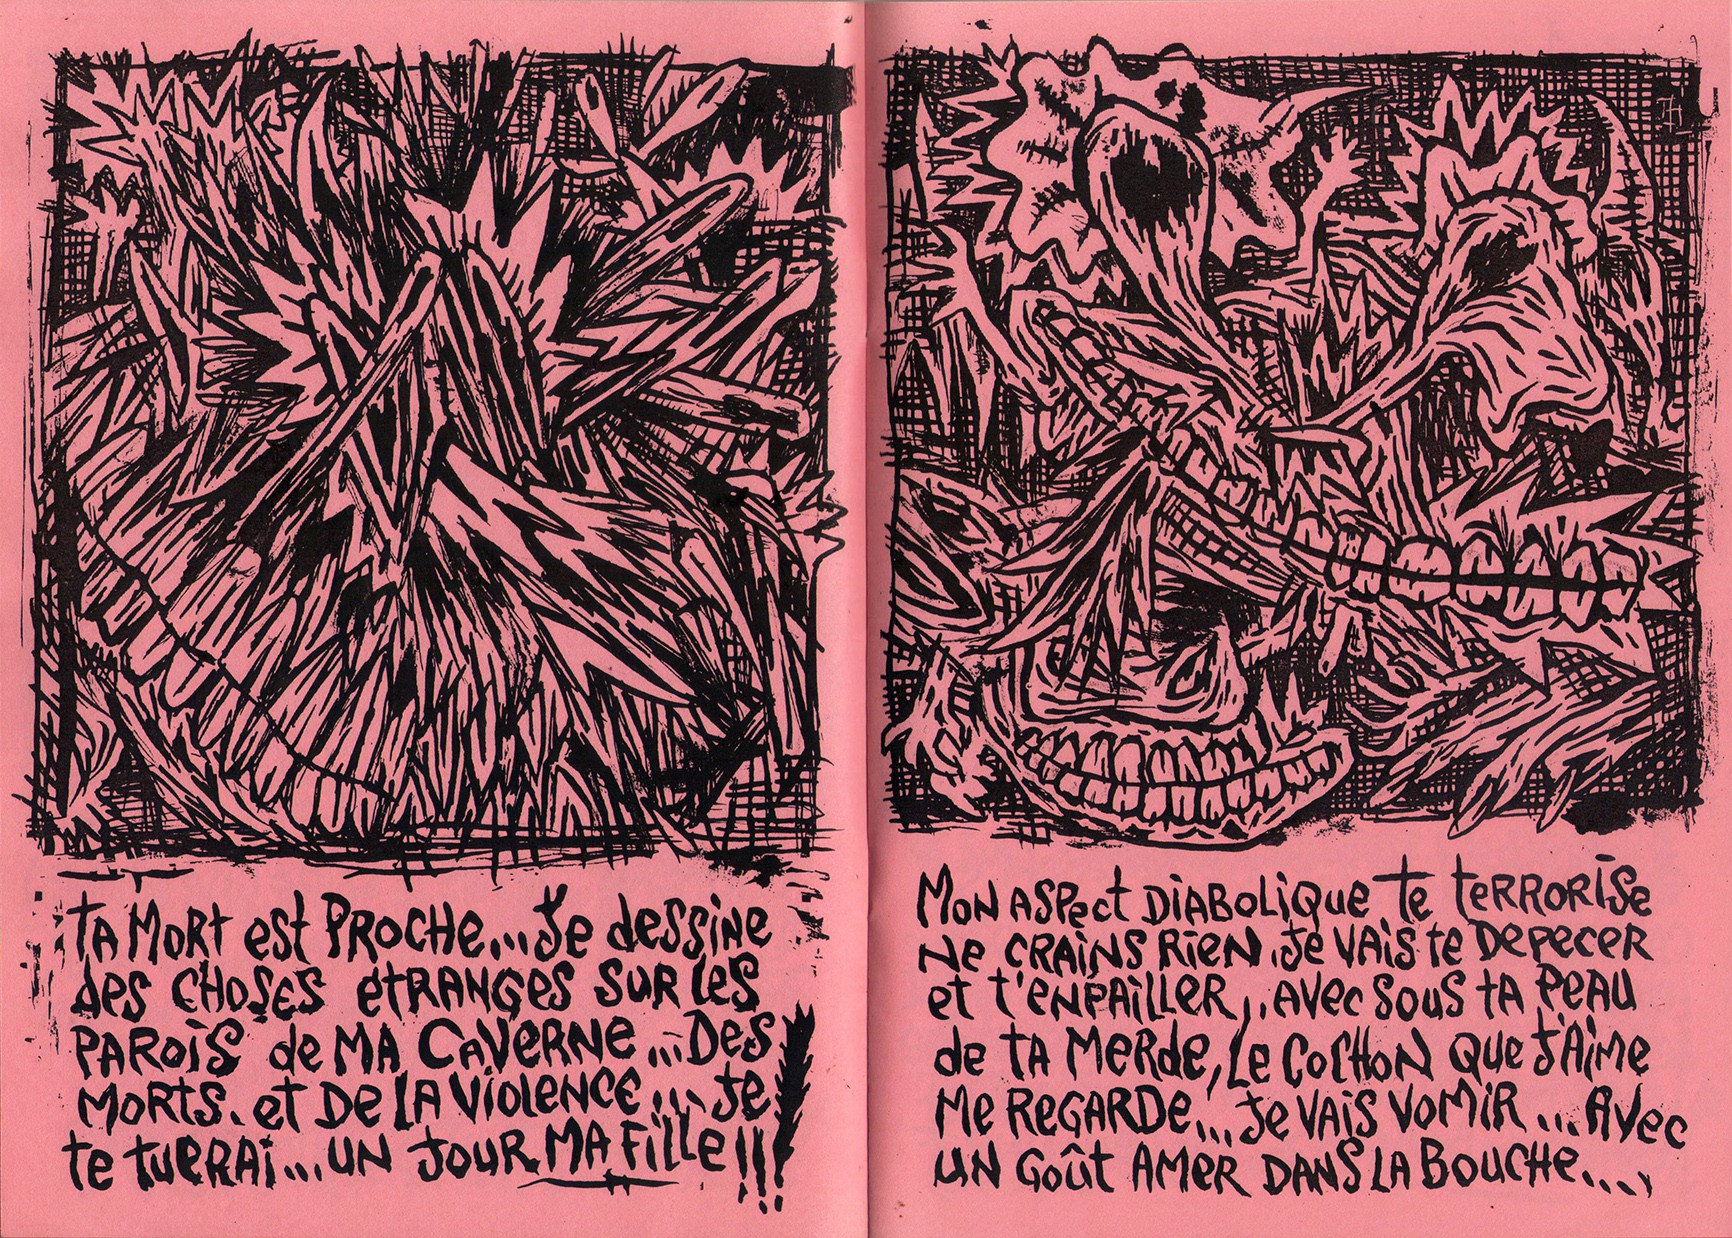 TA MORT EST PROCHE... JE DESSINE
DES CHOSES ETRANGES SUR LES
PAROIS DE MA CAVERNE... DES
MORTS. ET DE LA VIOLENCE... JE
TE TUERRAI... UN JOUR MA FILLE!!!
MON ASPECT DIABOLIQUE TE TERRORISE
NE CRAINS RIEN. JE VAIS TE DEPECER
ET T'ENPAILLER.. AVEC SOUS TA PEAU
DE TA MERDE, LE COCHON QUE J'AIME
ME REGARDE... JE VAIS VOMIR... AVEC
UN GOÛT AMER DANS LA BOUCHE....